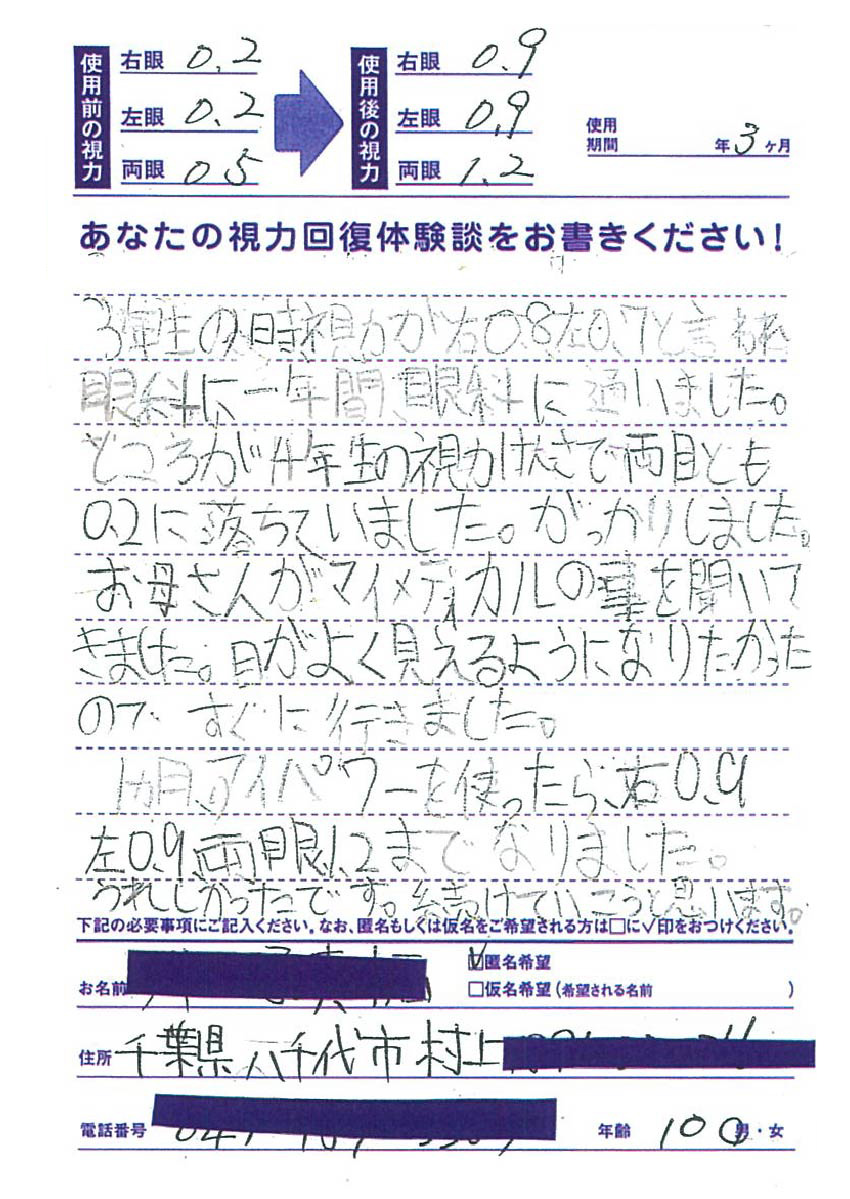 使用前の視力
右眼 0.2
左眼 0.2
両眼 0.5
使用後の視力
右眼 0.9
左眼 0.9
両眼 1.2
使用期間 年 3 ヶ月
あなたの視力回復体験談をお書きください！
3年生の時視力が右0.8左0.7と言われ
眼科に一年間、眼科に通いました。
ところが4年生の視力けんさで両目とも
0.2に落ちていました。がっかりしました。
お母さんがマイメディカルの事を聞いて
きました。目がよく見えるようになりたかった
ので すぐに行きました。
1カ月、アイパワーを使ったら、右0.9
左0.9、両眼1.2までなりました。
うれしかったです。続けていこうと思います。
下記の必要事項にご記入ください。なお、匿名もしくは仮名をご希望される方は□に✓印をおつけください。
お名前
☑匿名希望
□仮名希望（希望される名前 ）
住所 千葉県八千代市村上
電話番号
年齢 10 男・女